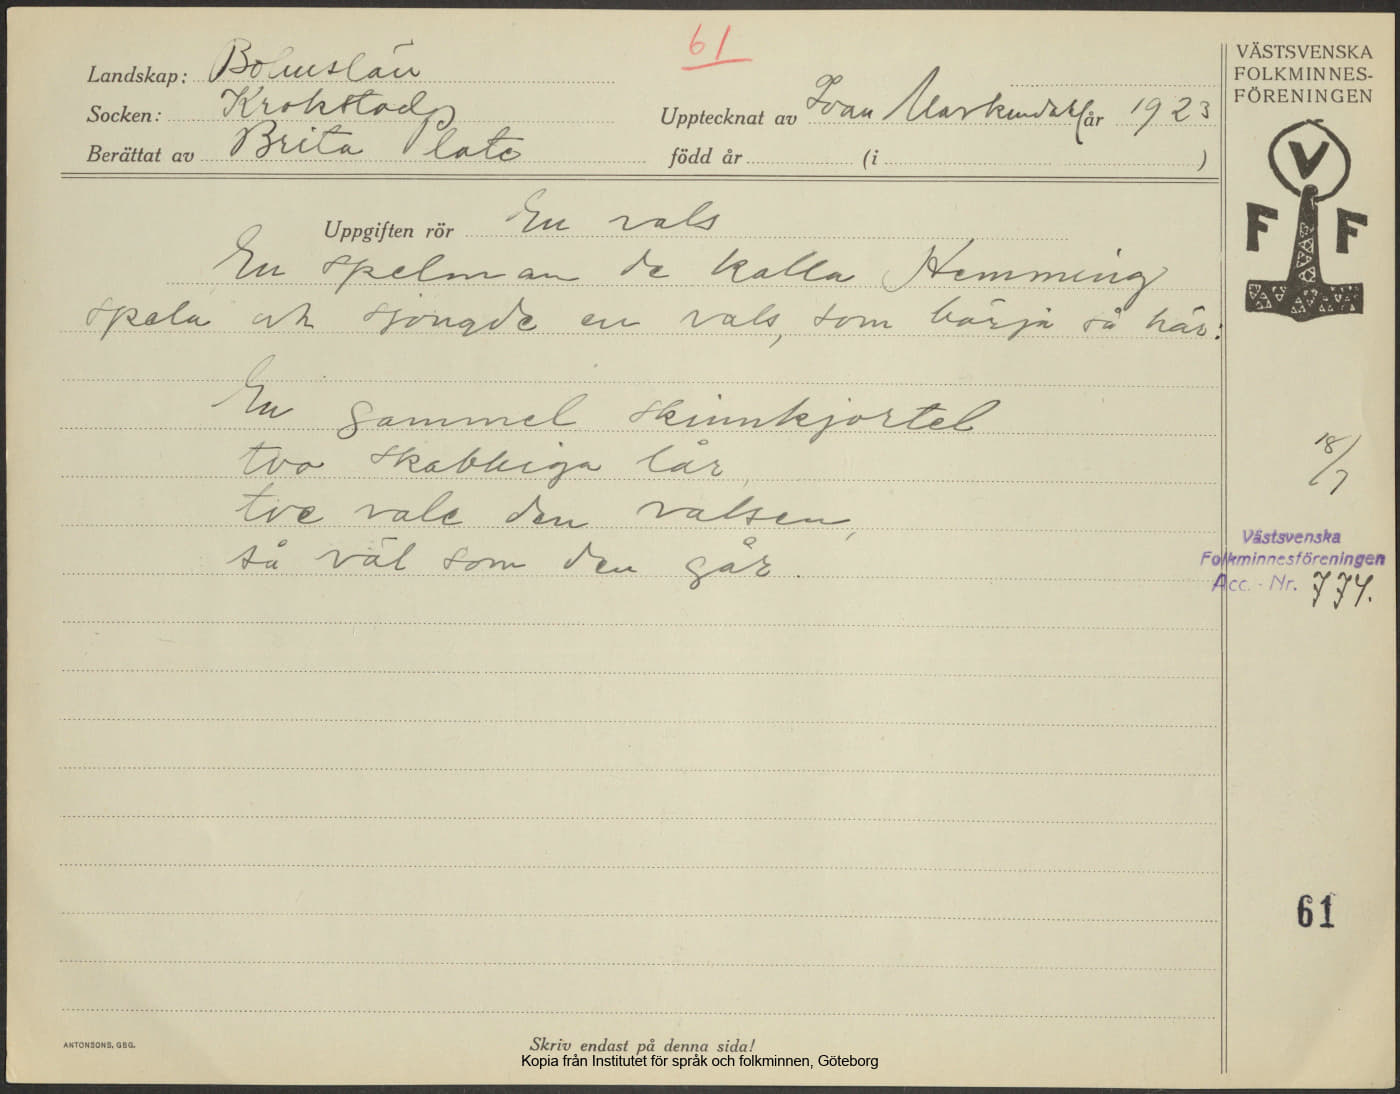 61
Landskap: Bohuslän
Socken: Krokstad
Berättat av Brita Plate
Upptecknat av Ivan år 1923
född år (i )
Uppgiften rör En vals
En spelman de kalla Hemming
spela och sjongde en vals, som börja så här:
En gammel skinnkjortel
tva skabbiga lår,
tve vale den valsen,
så väl som den går.
VÄSTSVENSKA
FOLKMINNES-
FÖRENINGEN
V
F F
18/7
Västsvenska
Folkminnesföreningen
Acc. - Nr. 774.
61
ANTONSONS, GBG.
Skriv endast på denna sida!
Kopia från Institutet för språk och folkminnen, Göteborg